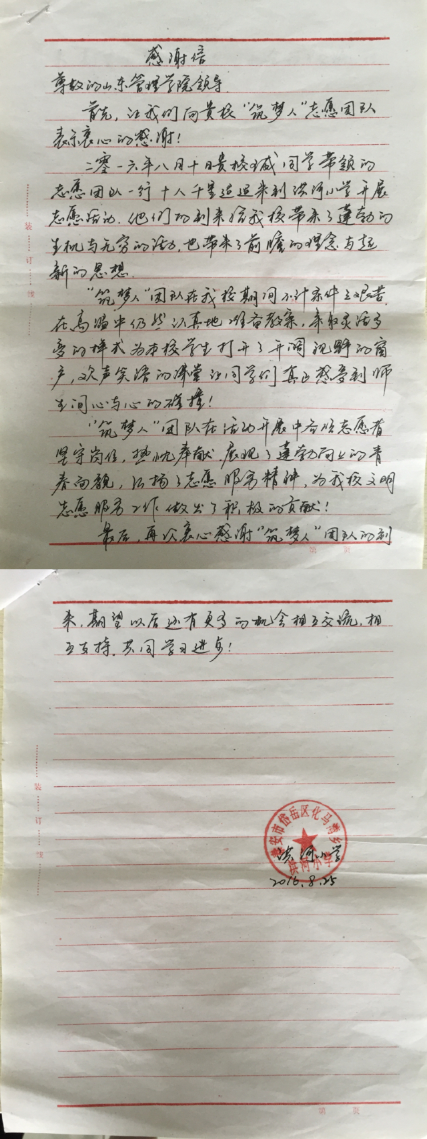 感谢信
尊敬的山东管理学院领导
首先，让我们向贵校“筑梦人”志愿团队
表示衷心的感谢！
二零一六年八月十日贵校 同学带领的
志愿团队一行十人千里迢迢来到滨河小学开展
志愿活动，他们的到来给我校带来了蓬勃的
生机与无穷的活力，也带来了前瞻的理念与超
新的思想
“筑梦人”团队在我校期间不计条件之艰苦
在高温中仍然认真地准备教案，并以灵活多
变的样式为本校学生打开了开阔视野的窗
户，欢声笑语的课堂让同学们真正感受到师
生间心与心的碰撞！
“筑梦人”团队在活动开展中各位志愿者
坚守岗位，热忱奉献，展现了蓬勃向上的青
春面貌，弘扬了志愿服务精神，为我校文明
志愿服务工作做出了积极的贡献！
最后，再次衷心感谢“筑梦人”团队的到
第 页
装
订
线
来，期望以后还有更多的机会相互交流，相
互支持，共同学习进步！
装
订
线
泰安市岱岳区化马湾乡
滨河小学
滨河小学
2016.8.25
第 页